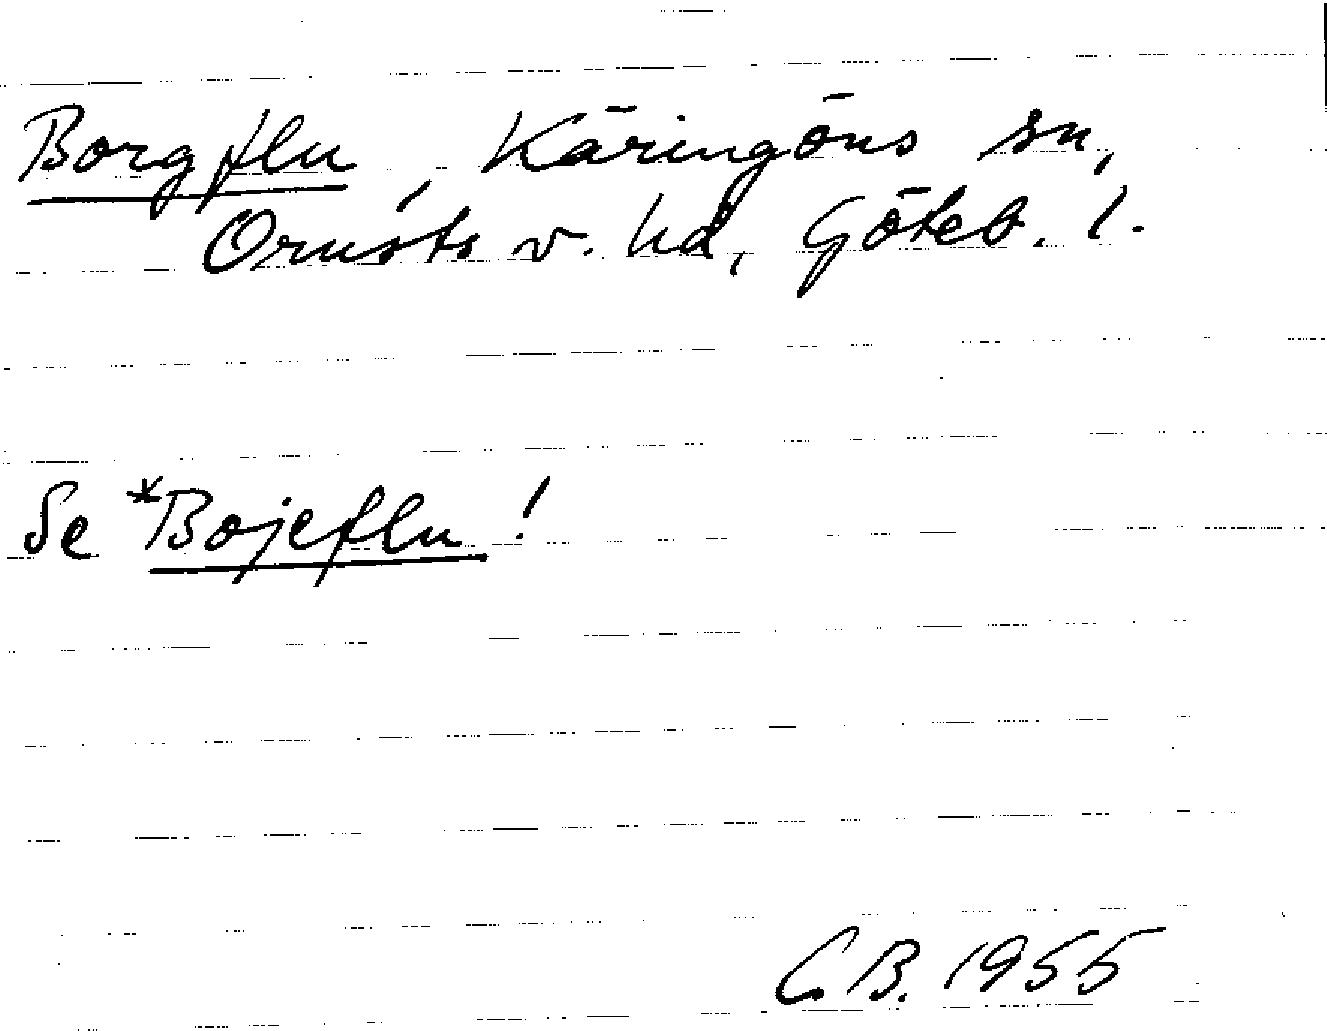 Borgflu, Käringöns sn,
Orusts v. hd, Göteb. l.
Se *Bojeflu!
C.B. 1955